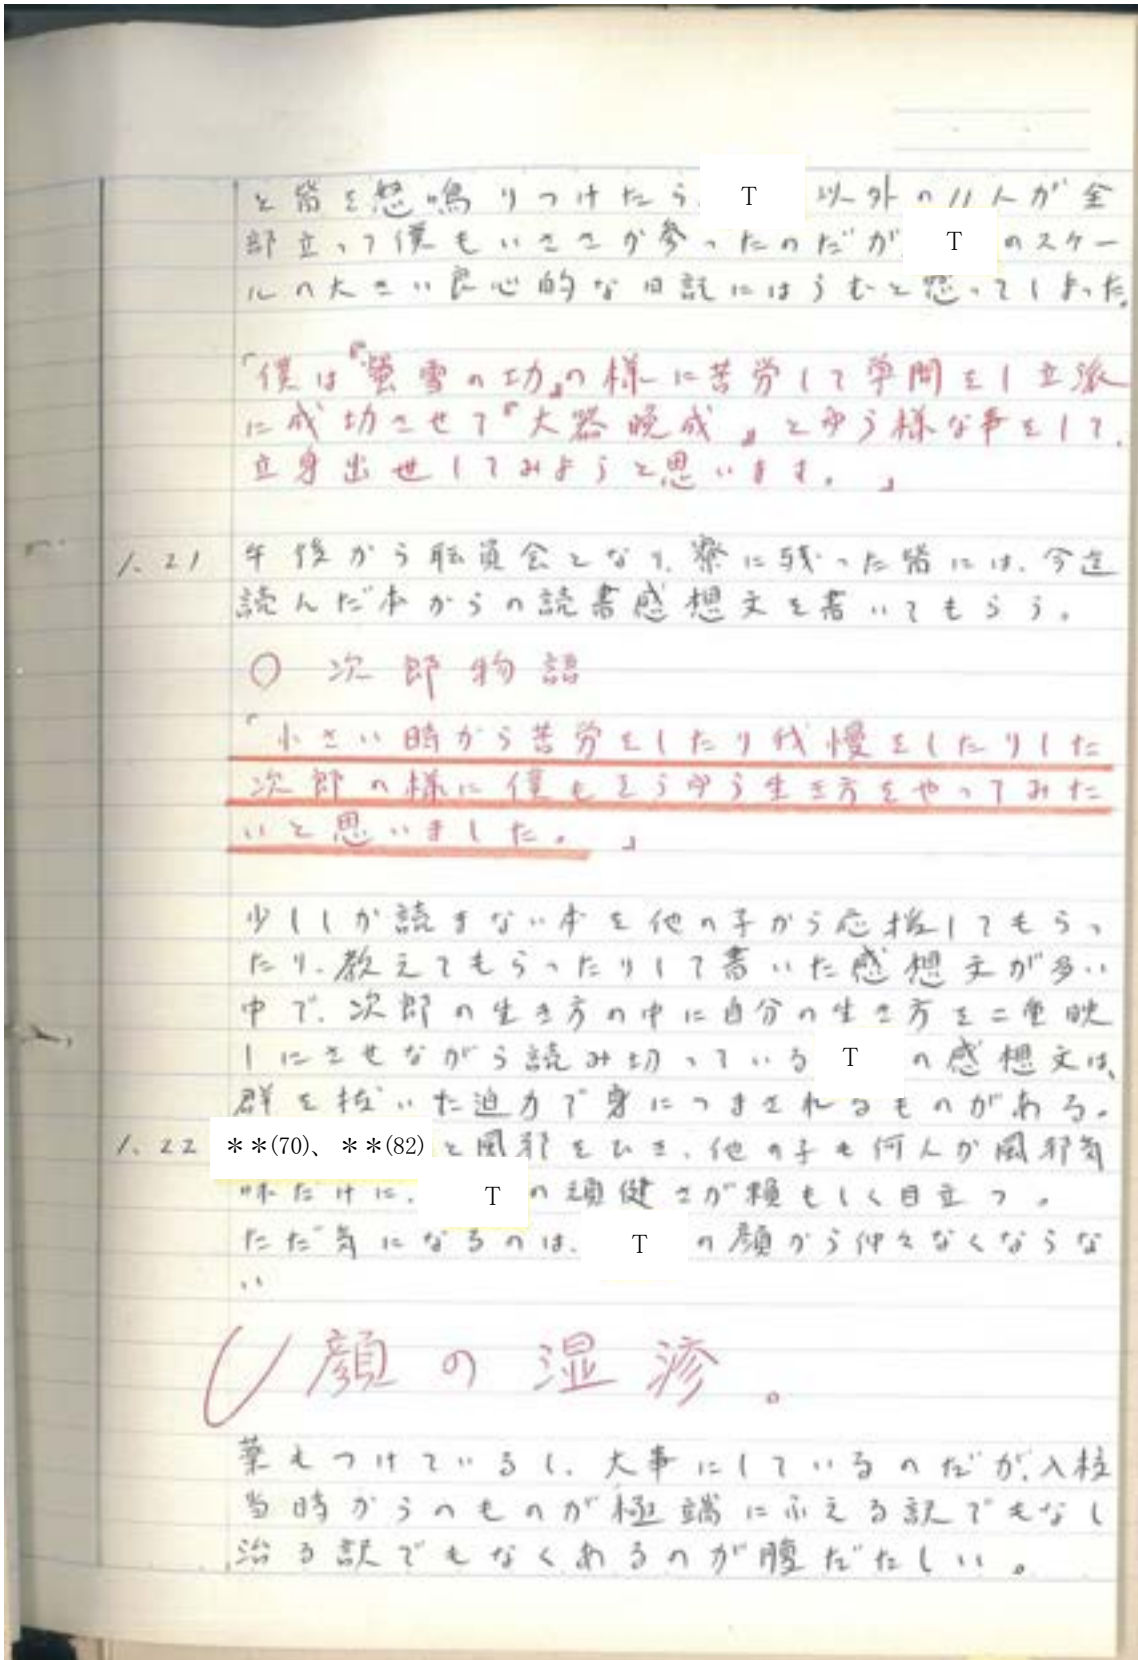 と皆を怒鳴りつけたら、 T 以外の11人が全
部立って僕もいささか参ったのだが T のスケー
ルの大きい良心的な日記にはうむと思ってしまった。
「僕は『螢雪の功』の様に苦労して学問をし立派
に成功させて『大器晩成』とゆう様な事をして、
立身出世してみようと思います。」
1.21 午後から職員会となり、寮に残った皆には、今迄
読んだ本からの読書感想文を書いてもらう。
○ 次郎物語
「小さい時から苦労をしたり我慢をしたりした
次郎の様に僕もそうゆう生き方をやってみた
いと思いました。」
少ししか読まない本を他の子から応援してもらっ
たり、教えてもらったりして書いた感想文が多い
中で、次郎の生き方の中に自分の生き方を二重映
しにさせながら読み切っている T の感想文は、
群を抜いた迫力で身につまされるものがある。
1.22 **(70)、**(82) と風邪をひき、他の子も何人か風邪気
味だけに、 T の頑健さが頼もしく目立つ。
ただ気になるのは、 T の顔から仲々なくならな
い
顔の湿疹。
薬もつけているし、大事にしているのだが、入校
当時からのものが極端にふえる訳でもなし
治る訳でもなくあるのが腹だたしい。